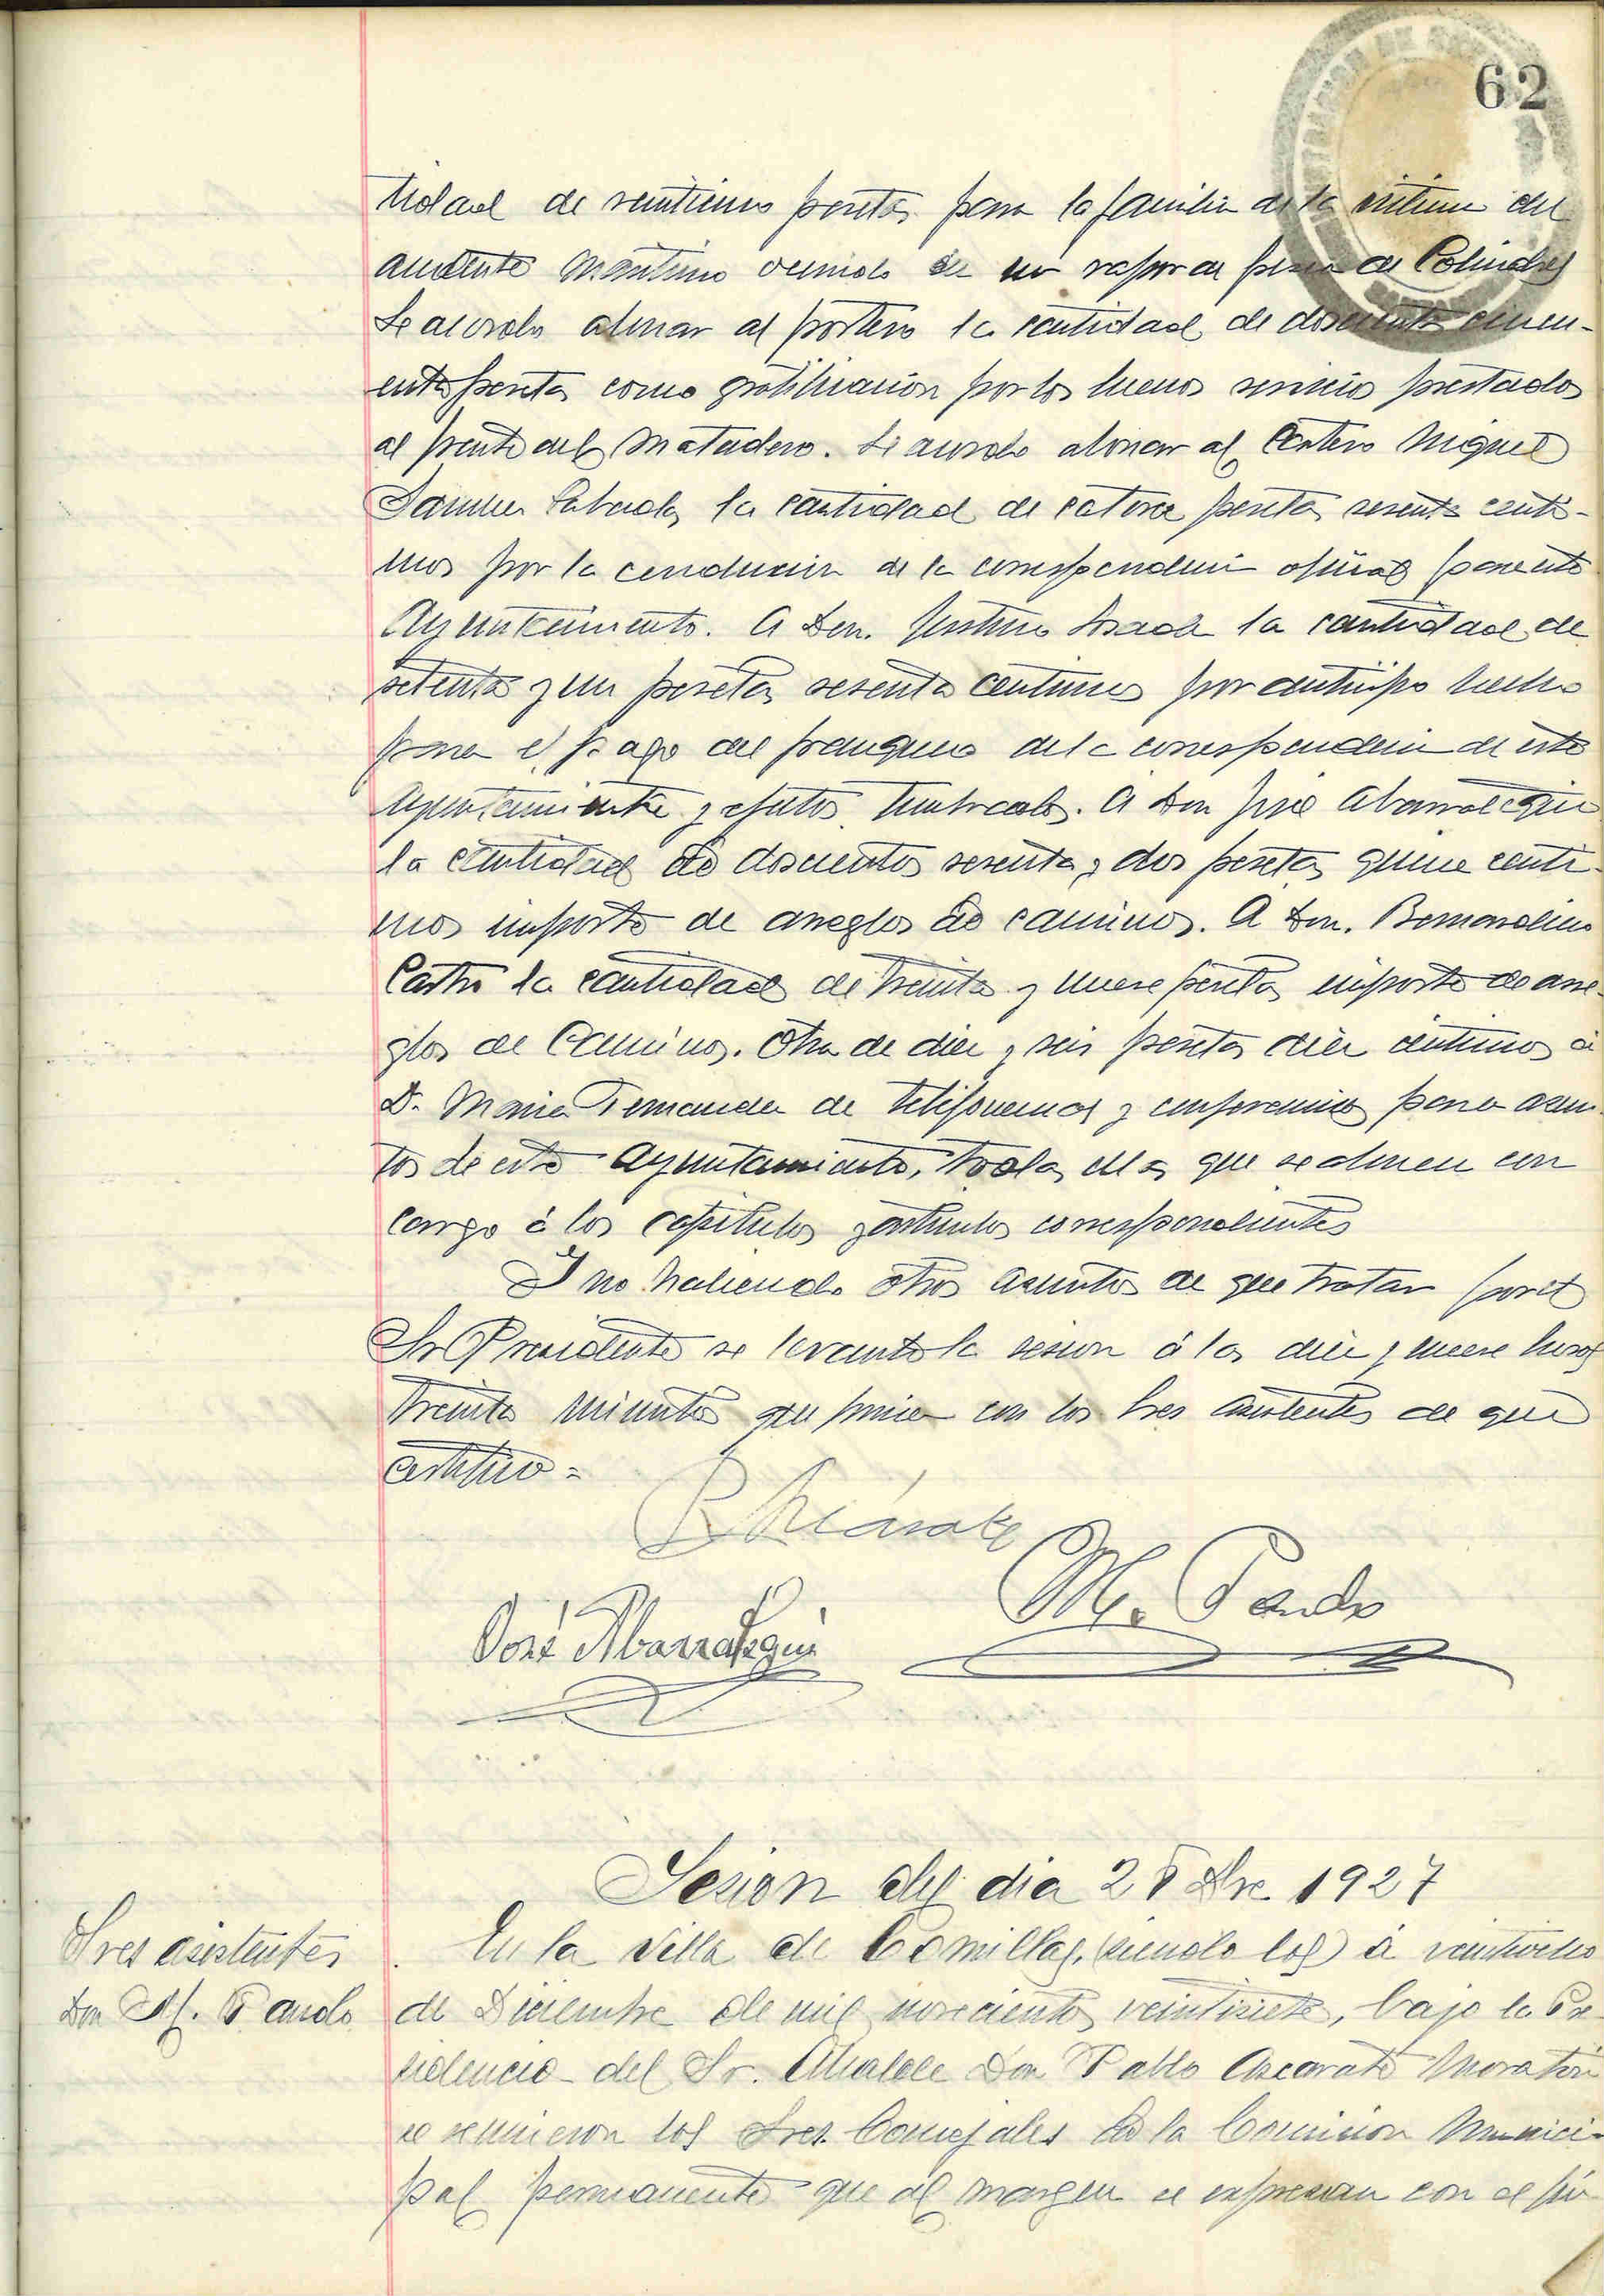 62
tidad de veinticinco pesetas para la familia de la victima del
accidente maritimo ocurrido de un vapor de pesca de Colindres
Se acordo abonar al portero la cantidad de doscientas cincu-
enta pesetas como gratificación por los buenos servicios prestados
al frente del Matadero. Se acordo abonar al Cartero Miguel
Sanchez la cantidad de catorce pesetas sesenta centi-
mos por la conducción de la correspondencia oficial para este
Ayuntamiento. A Don. la cantidad de
setenta y un pesetas sesenta centimos por anticipo hecho
para el pago del franqueo de la correspondencia de este
Ayuntamiento y efectos timbrados. A Don José Abarrategui
la cantidad de doscientos sesenta y dos pesetas quince centi-
mos importe de arreglos de caminos. A Don. Bernardino
Castro la cantidad de treinta y nueve pesetas importe de arre-
glos de Caminos. Otra de diez y seis pesetas diez centimos á
D. Maria Fernandez de telefonemas y conferencias para asun-
tos de este Ayuntamiento, todas ellas que se abonen con
cargo á los capitulos y artículos correspondientes
Y no habiendo otros asuntos de que tratar por el
Sr Presidente se levanto la sesion á las diez y nueve horas
treinta minutos que firma con los Sres asistentes de que
certifico =
P. Azcárate
M. Pando
José Abarrategui
Sesion del dia 28 Dbre 1927
Sres asistentes
Don M. Pando
En la Villa de Comillas, (siendo las) á veintiocho
de Diciembre de mil novecientos veintisiete, bajo la Pre-
sidencia del Sr. Alcalde Don Pablo Azcarate Moratón
se reunieron los Sres. Concejales de la Comision Munici-
pal permanente que al margen se expresan con el fin